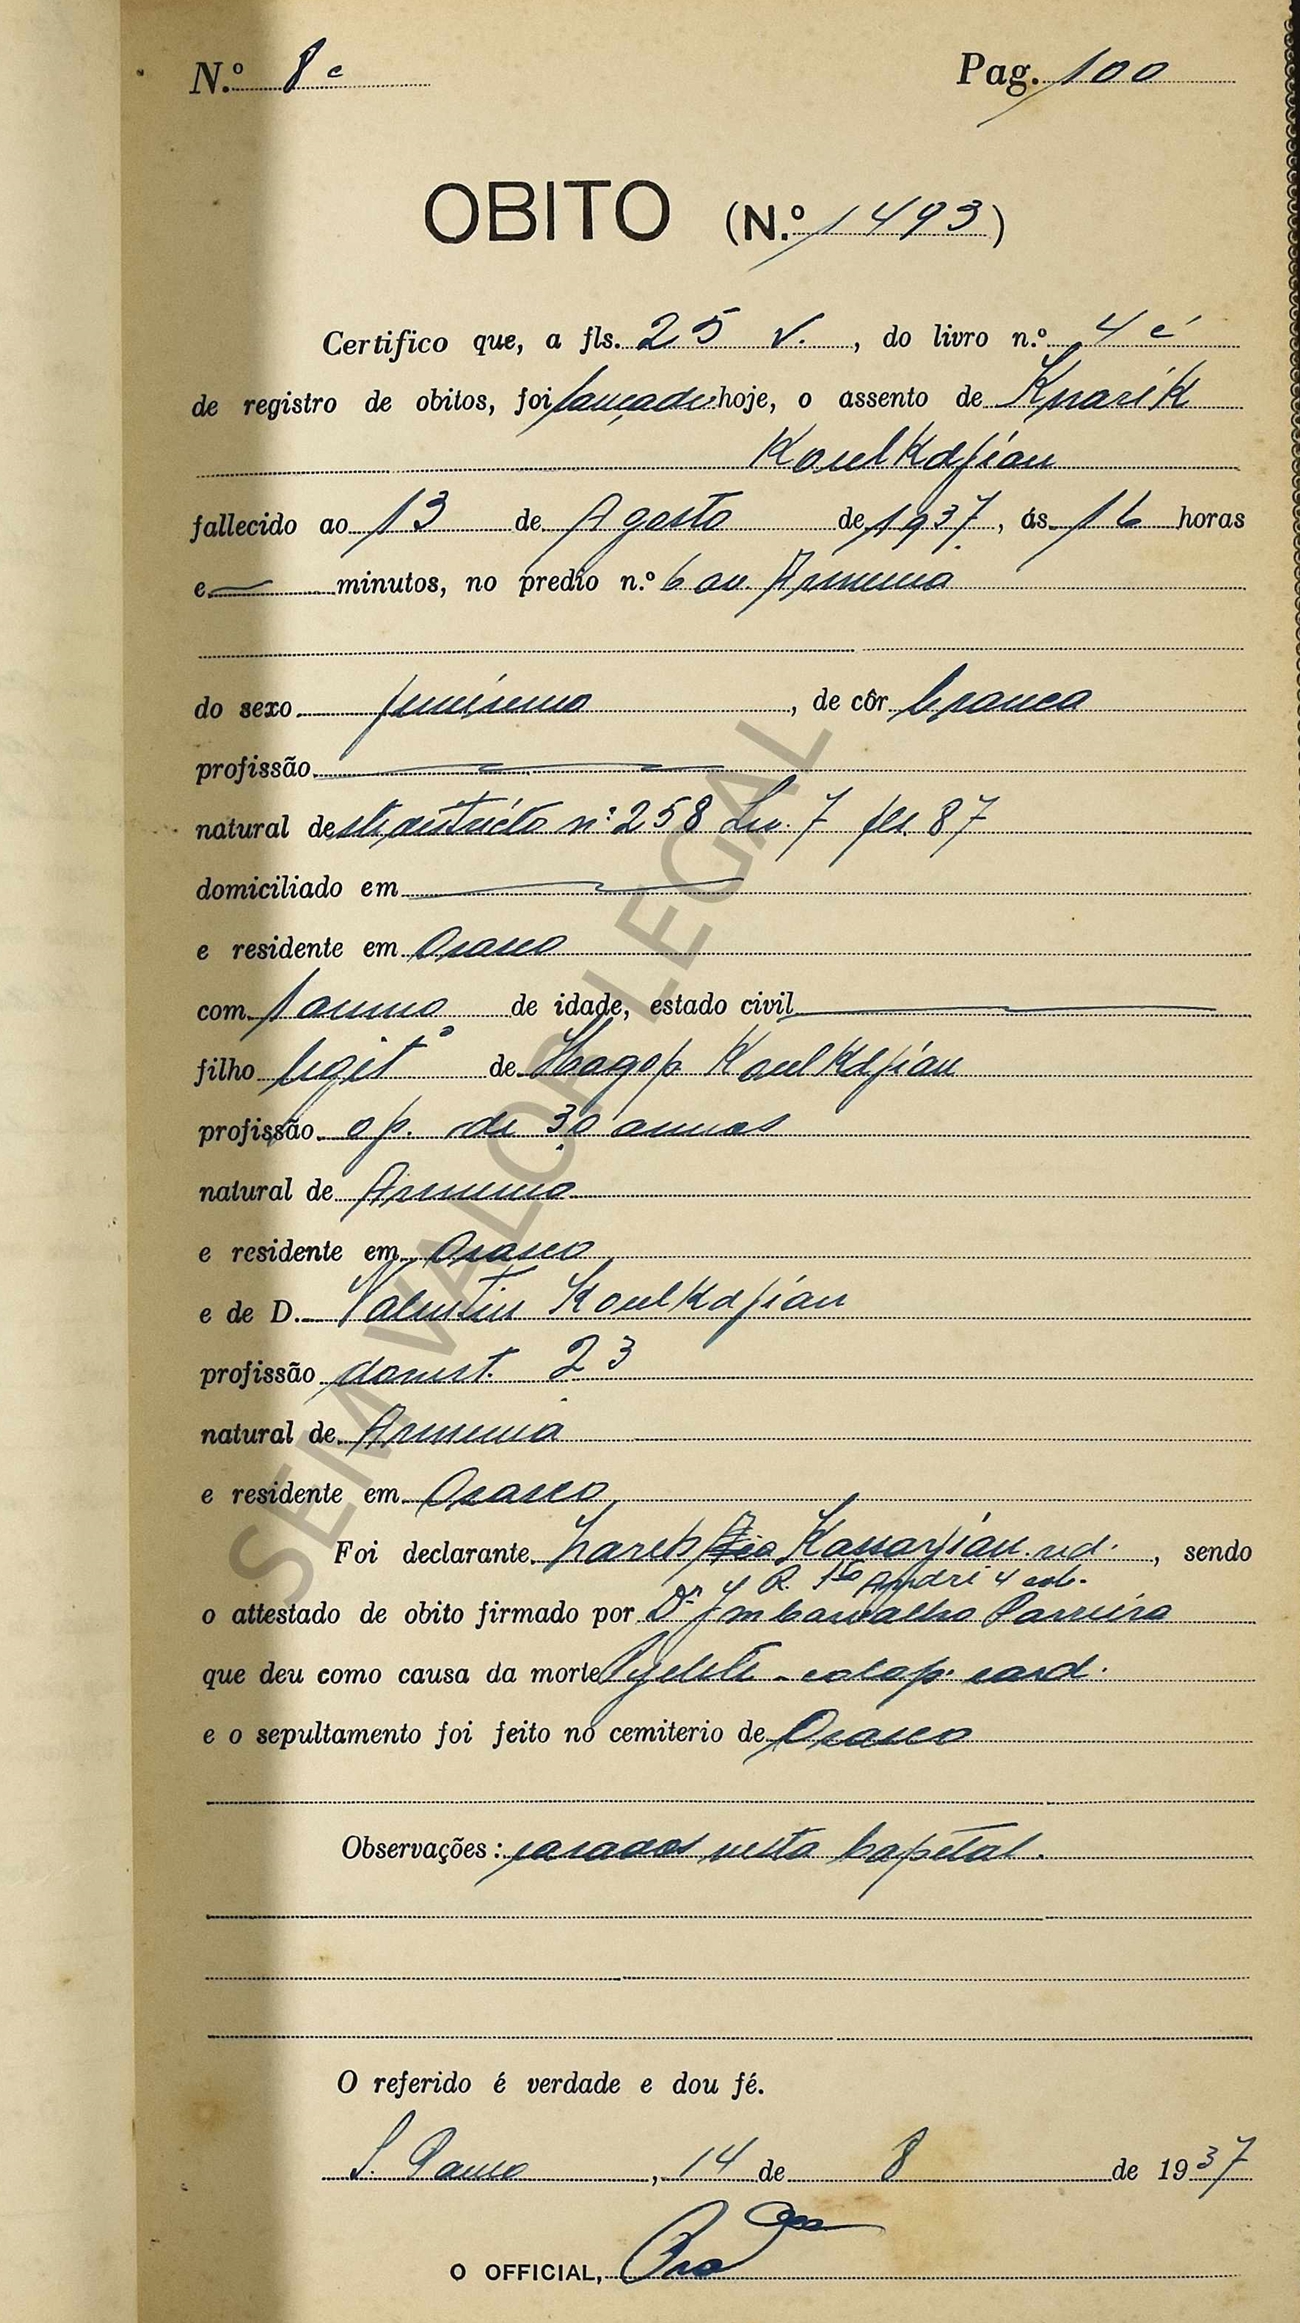 N.º 8 c Pag. 100
OBITO (N.º 1493)
Certifico que, a fls. 25 v., do livro n.º 4 c
de registro de obitos, foi lançado hoje, o assento de Knarik
Koulkdjian
fallecido ao 13 de Agosto de 1937, ás 16 horas
e minutos, no predio n.º 6 av. Armenia
do sexo feminino, de côr branca
profissão
natural de districto nº 258 Liv. 7 fls. 87
domiciliado em
e residente em Osasco
com 1 anno de idade, estado civil
filho legitº de Hagop Koulkdjian
profissão op. de 30 annos
natural de Armenia
e residente em Osasco
e de D. Valentin Koulkdjian
profissão domest. 23
natural de Armenia
e residente em Osasco
Foi declarante Zareh Kassarjian rd., sendo
R. Sto André 4 cob.
o attestado de obito firmado por Dr. Jm Carvalho Parreira
que deu como causa da morte - colap. card.
e o sepultamento foi feito no cemiterio de Osasco
Observações: casados nesta Capital.
O referido é verdade e dou fé.
S. Paulo, 14 de 8 de 1937
O OFFICIAL,
SEM VALOR LEGAL